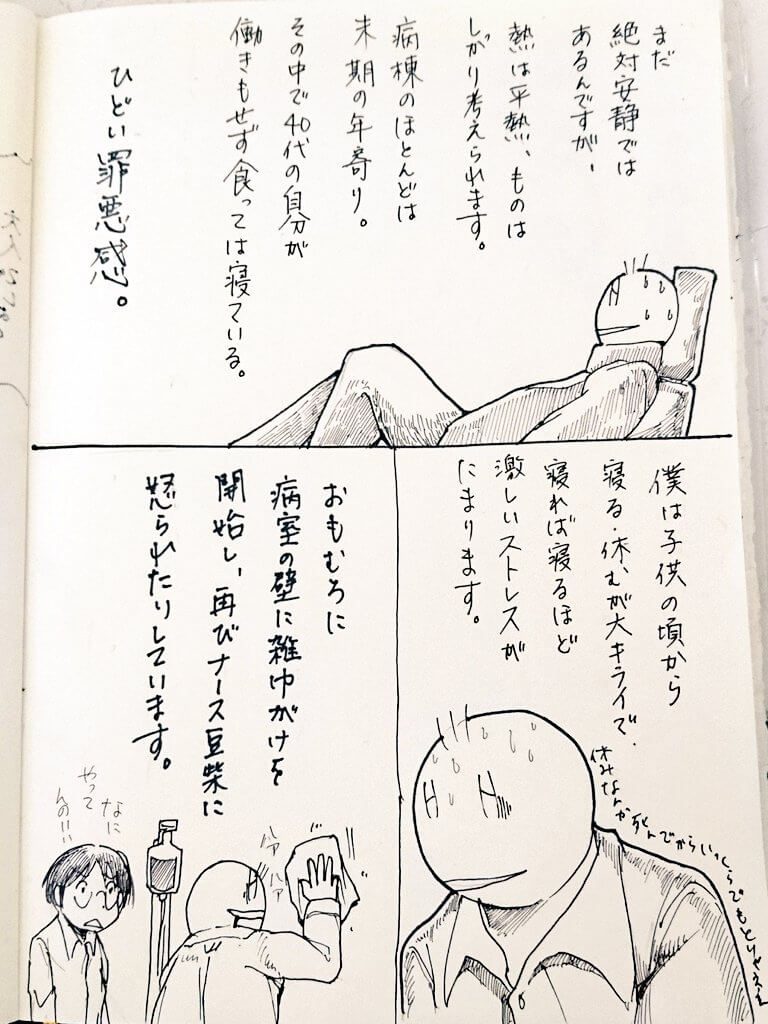 まだ
絶対安静では
あるんですが、
熱は平熱、ものは
しがり考えられます。
病棟のほとんどは
末期の年寄り。
その中で40代の自分が
働きもせず食っては寝ている。
ひどい罪悪感。
僕は子供の頃から
寝る・休むが大キライで、
寝れば寝るほど
激しいストレスが
たまります。
休みなんか死んでからいっくらでもとりゃええ
おもむろに
病室の壁に雑巾がけを
開始し、再びナース豆柴に
怒られたりしています。
なに
やって
んの!!